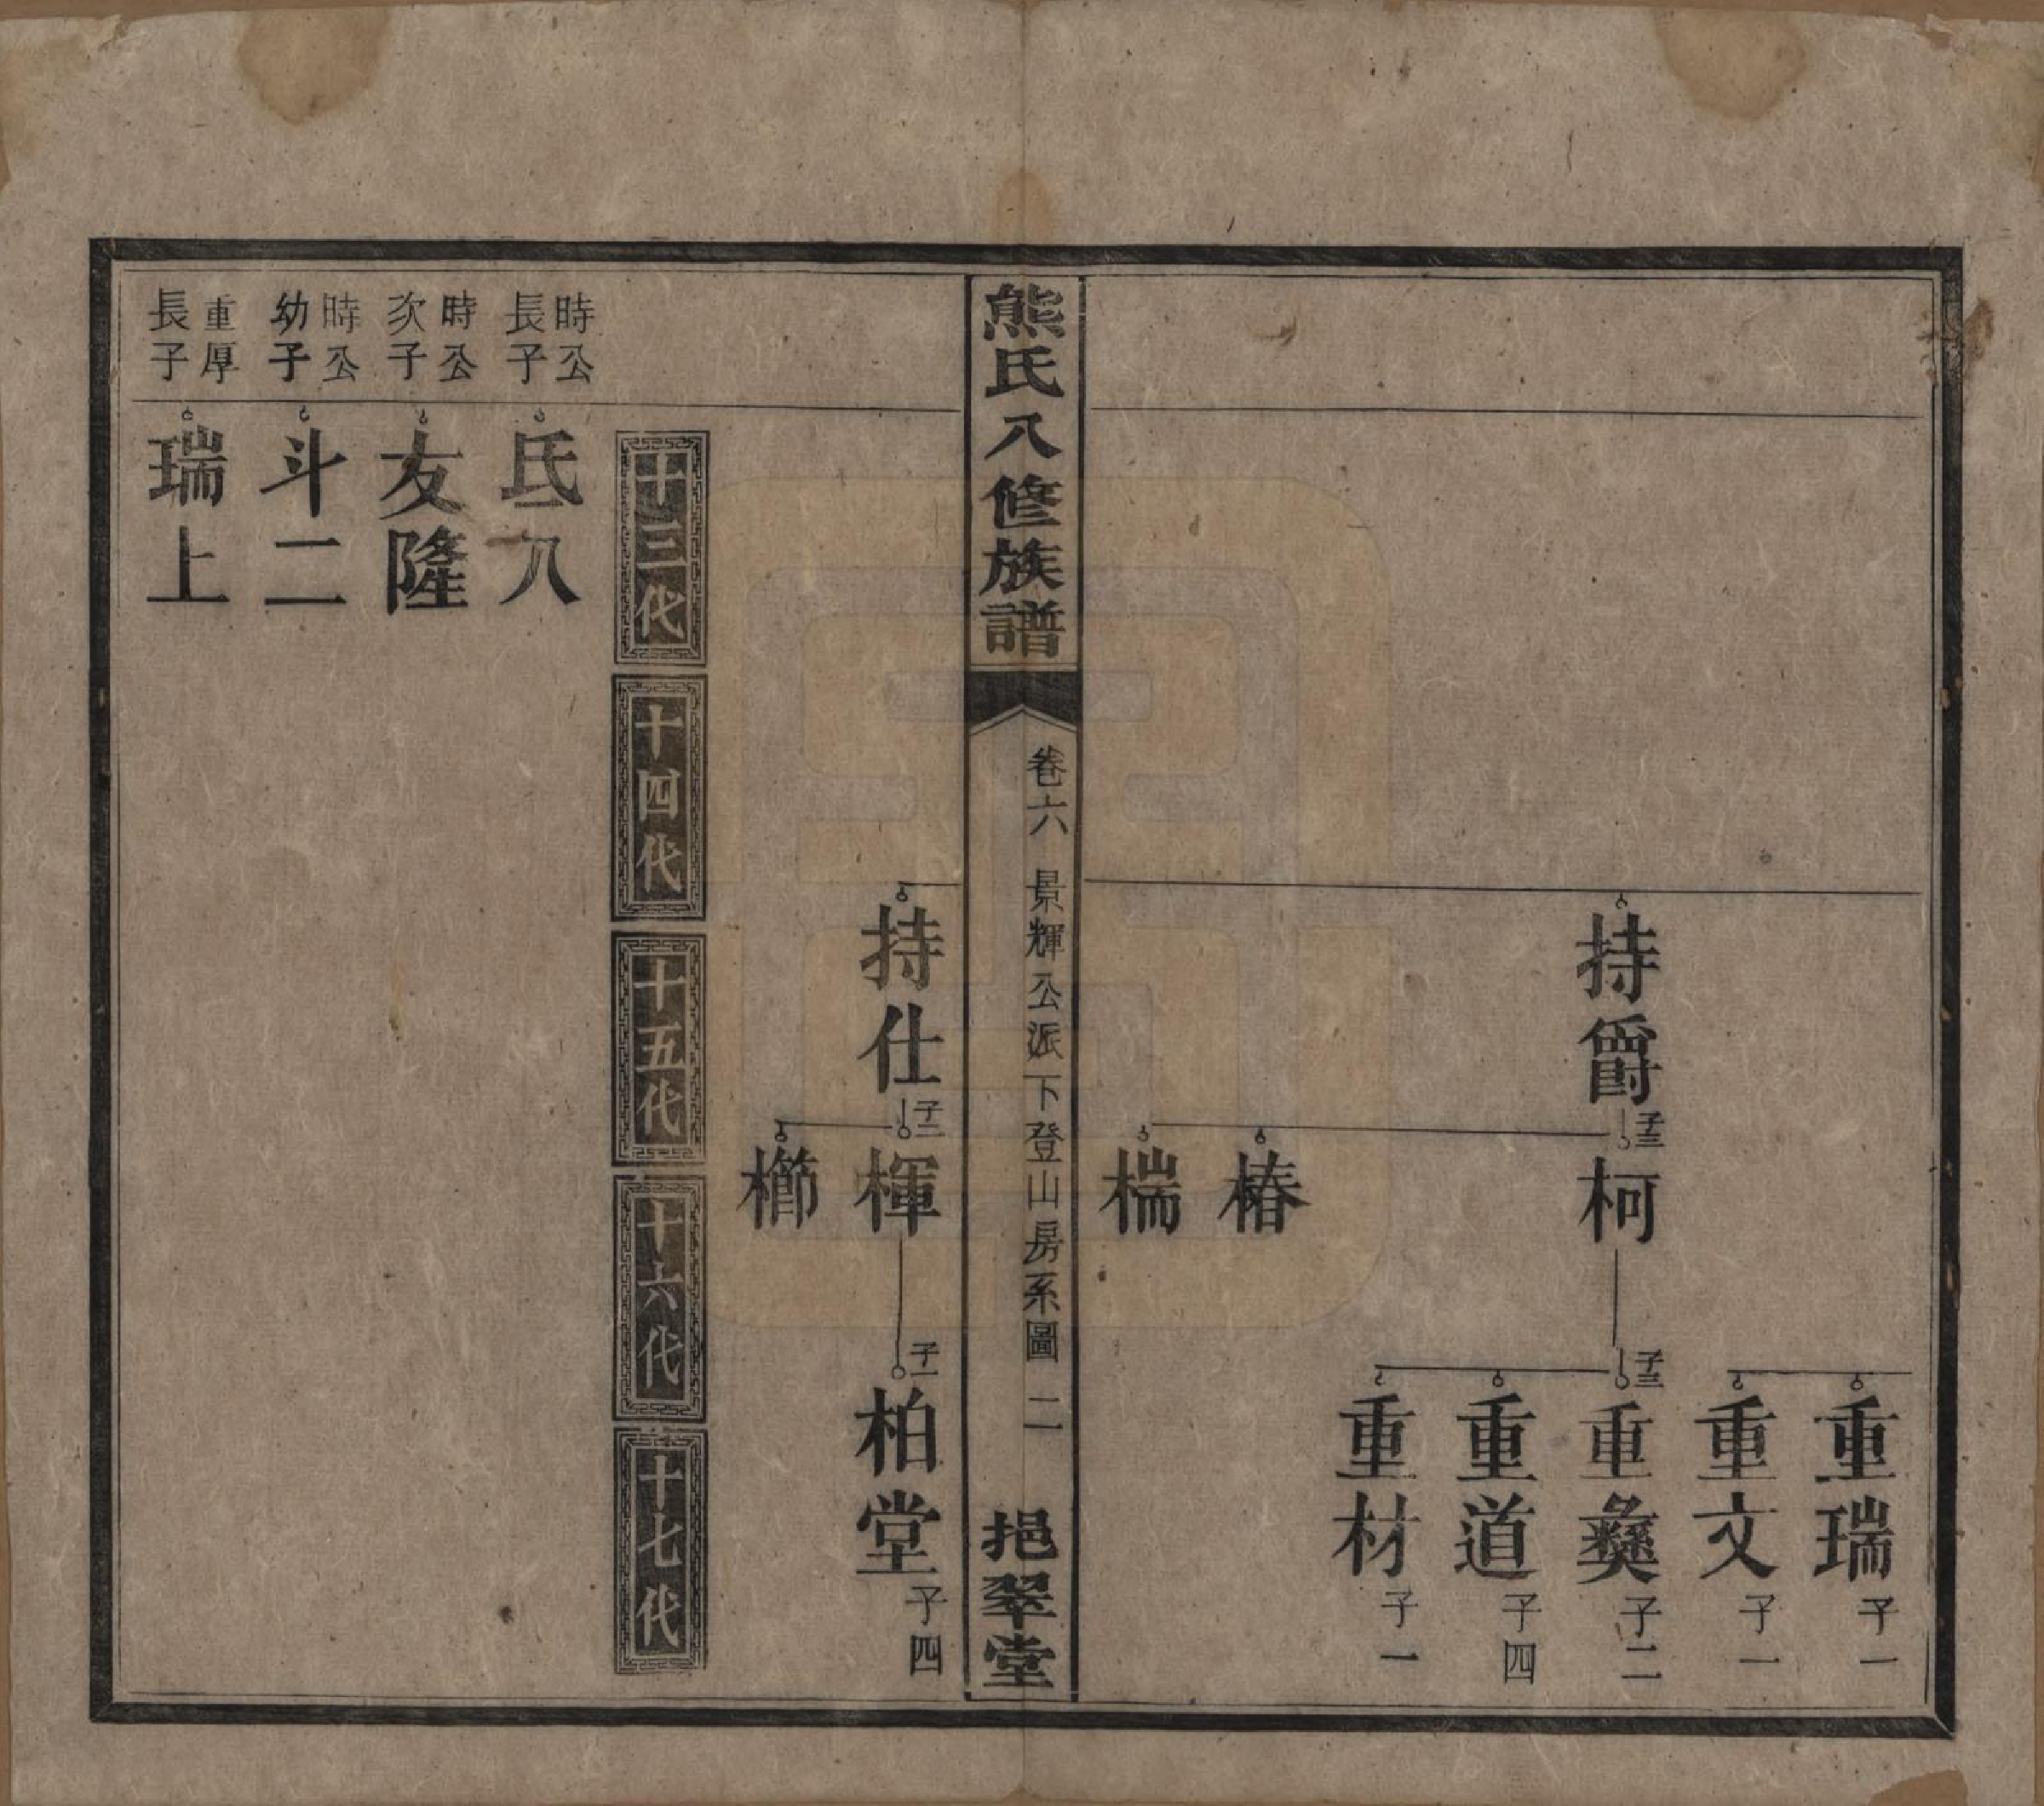 重瑞子一
重文子一
持爵子三
柯子三
重彝子二
重道子四
重材子一
椿
椯
熊氏八修族譜
卷六 景輝公派下登山房系圖 二
挹翠堂
持仕子二
楎子一
柏堂子四
櫛
十三代
十四代
十五代
十六代
十七代
時公長子
氏八
時公次子
友隆
時公幼子
斗二
重厚長子
瑞上